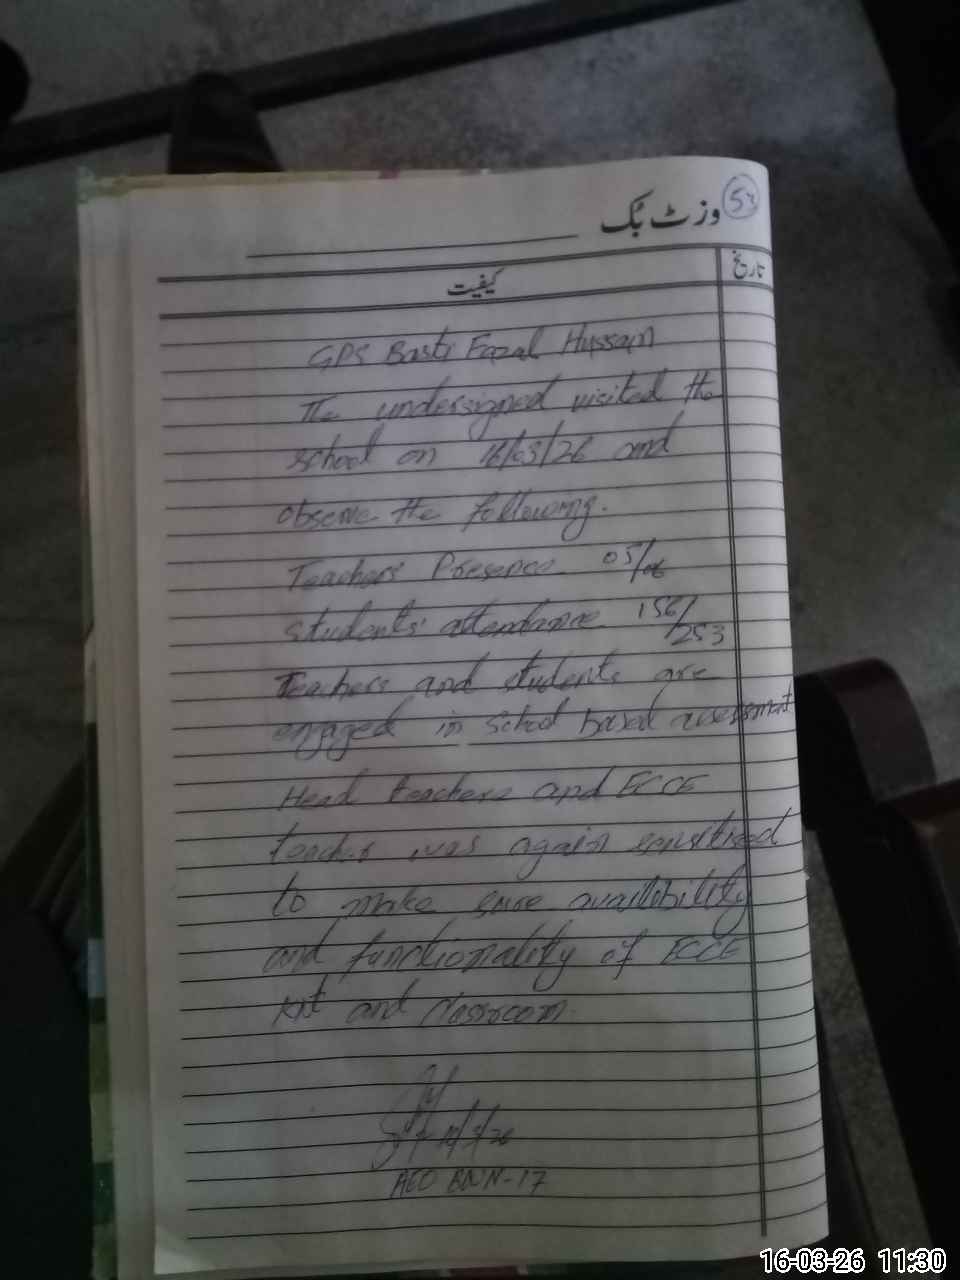 وزٹ بُک
تاریخ
کیفیت
GPS Basti Fazal Hussain
The undersigned visited the
school on 16/03/26 and
observe the following.
Teachers' Presence 05/06
students' attendance 156/253
Teachers and students are
engaged in school based assessment
Head teachers and ECCE
teacher was again sensitized
to make sure availability
and functionality of ECCE
Kit and classroom.
16/3/26
AEO BNN-17
16-03-26 11:30